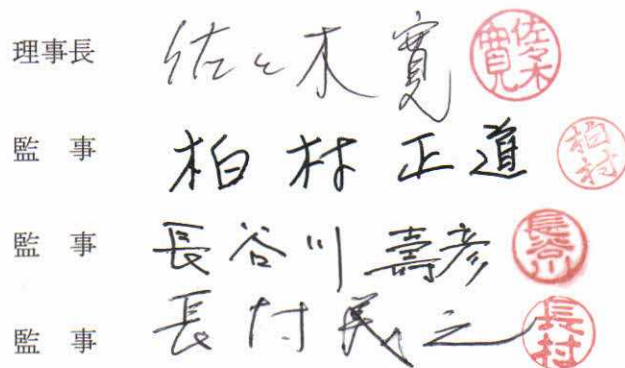 理事長 佐々木寛 佐々木寛
監 事 柏村正道 柏村
監 事 長谷川壽彦 長谷川
監 事 長村義之 長村